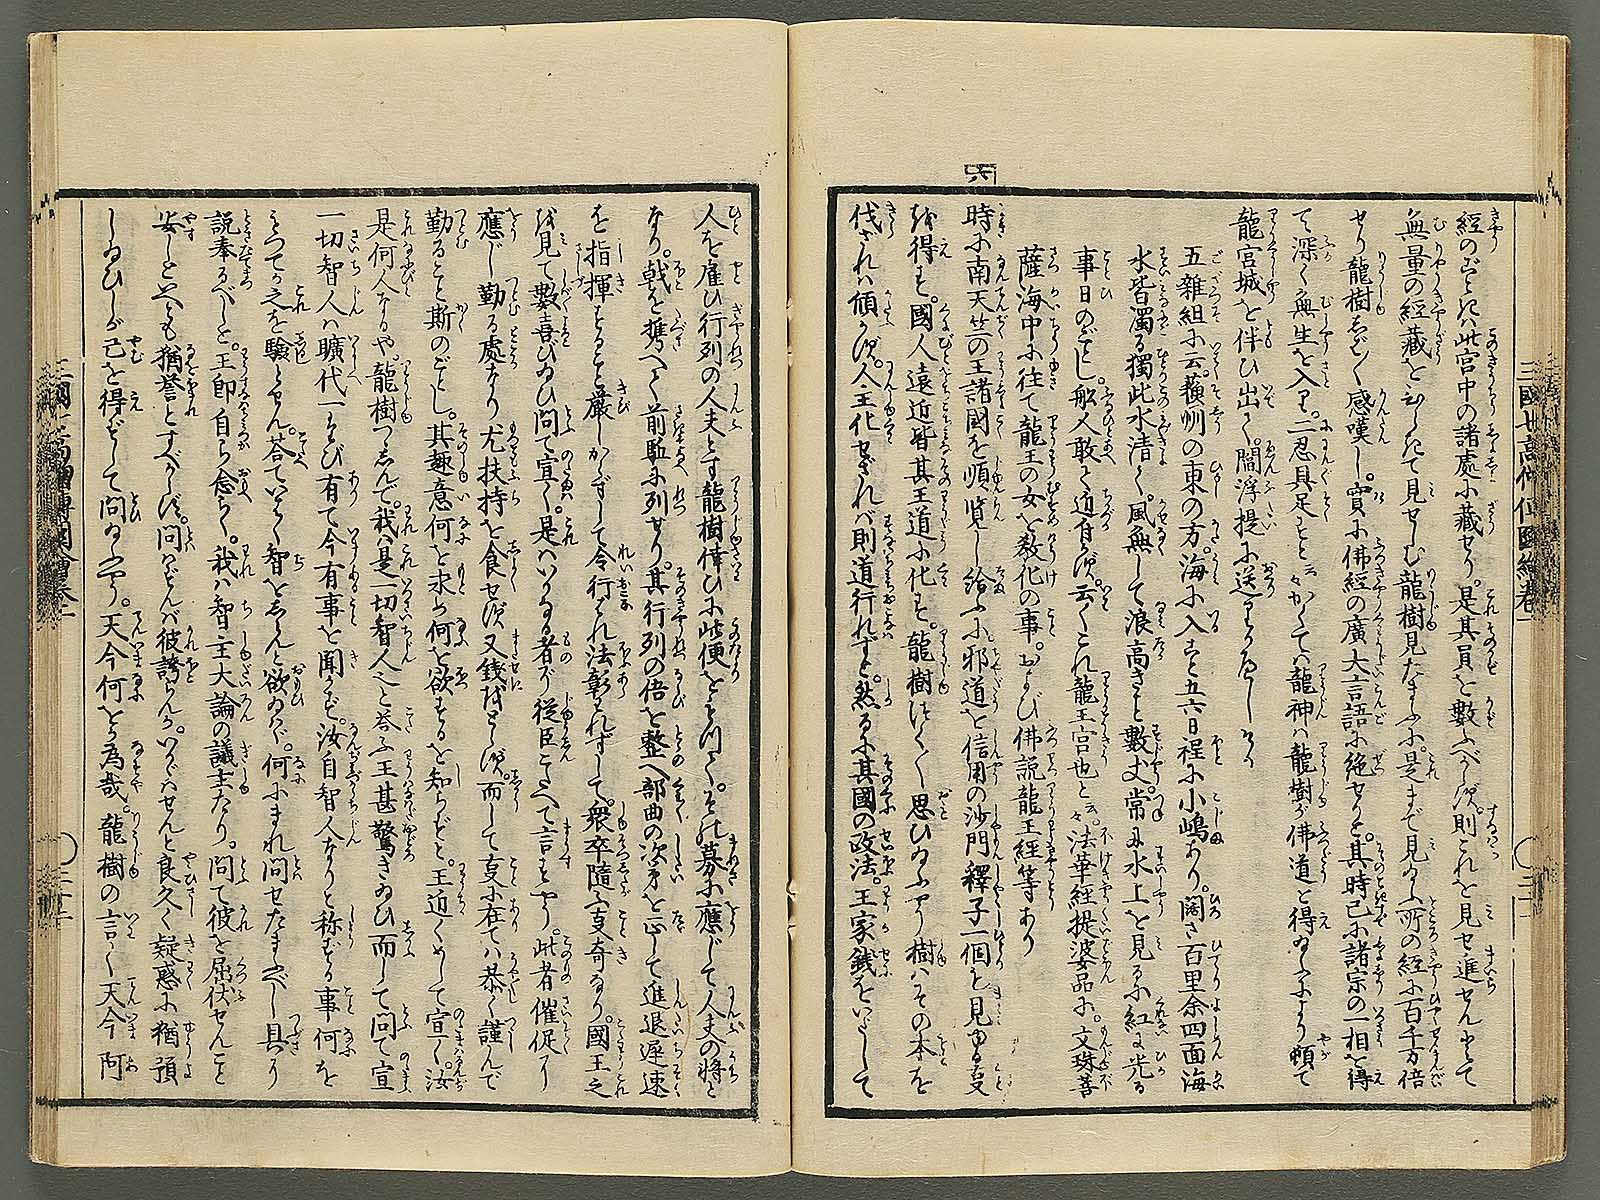 三國七高僧傳圖繪卷一
經のごときハ此宮中の諸處に藏せり。是其員を數ふべからず。則これを見せ進せんとて
無量の經藏をひらきて見せしむ龍樹見たまふに。是まで見たまふ所の經に百千万倍
せり龍樹ふかく感嘆し。實に佛經の廣大言語に絶せりと。其時已に諸宗の一相を得
て深く無生を入り。二忍具足すと云々かくて八龍神ハ龍樹が佛道を得たまふにより頓て
龍宮城を伴ひ出て。閻浮提に送りかへしける
五雜組に云。蘓州の東の方。海に入こと五六日程に小嶋あり。闊さ百里余四面海
水皆濁る獨此水清く。風無して浪高きこと數丈。常に水上を見るに紅に光る
事日のごとし。舩人敢て近付ず。云くこれ龍王宮也と云々。法華經提婆品に。文珠菩
薩海中に往て龍王の女を教化の事。および佛説龍王經等あり
六
時に南天竺の王諸國を順覧し給ふに。邪道を信用の沙門釋子一個も見ゆる支
を得ず。國人遠近皆其王道に化す。龍樹つくづく思ひたまふやう樹ハその本を
伐されハ傾かず。人主化せざれバ則道行れずと。然るに其國の政法。王家錢をいだして
人を雇ひ行列の人夫とす龍樹倖ひに此便をもつて。その募に應じて人夫の將と
なり。戟を携へて前駈に列せり。其行列の俉を整へ部曲の次第を正して進退遲速
を指揮すること嚴しからずして令行れ法彰れずして。衆卒隨ふ支奇なり。國王之
を見て數喜びたまひ問て宣く。是ハいかなる者ぞ從臣こたへて言すやう。此者催促に
應じ勤る處なり尤扶持を食せず又錢をもとらず。而して支に在てハ恭く謹んで
勤ること斯のごとし。其趣意何を求め何を欲するを知らずと。王近くめして宣く。汝
是何人なるや。龍樹つゝしんで。我ハ是一切智人也と答ふ王甚驚きたまひ而して問て宣
一切智人ハ曠代一たび有て今有事を聞かず。汝自智人なりと称する事何を
もつてか之を驗とせん。答ていはく智をしらんと欲たまハゞ。何にまれ問せたまふべし具さに
説奉るべしと。王即自ら念らく。我ハ智主大論の議主たり。問て彼を屈伏せんこと
安しといへども猶誉とすべからず。問ハずんバ彼誇らんか。いかゞハせんと良久く疑惑に猶預
したまひしが已を得ずして問たまふやう。天今何をか為哉。龍樹の言く天今阿
三國七高僧傳圖繪卷一